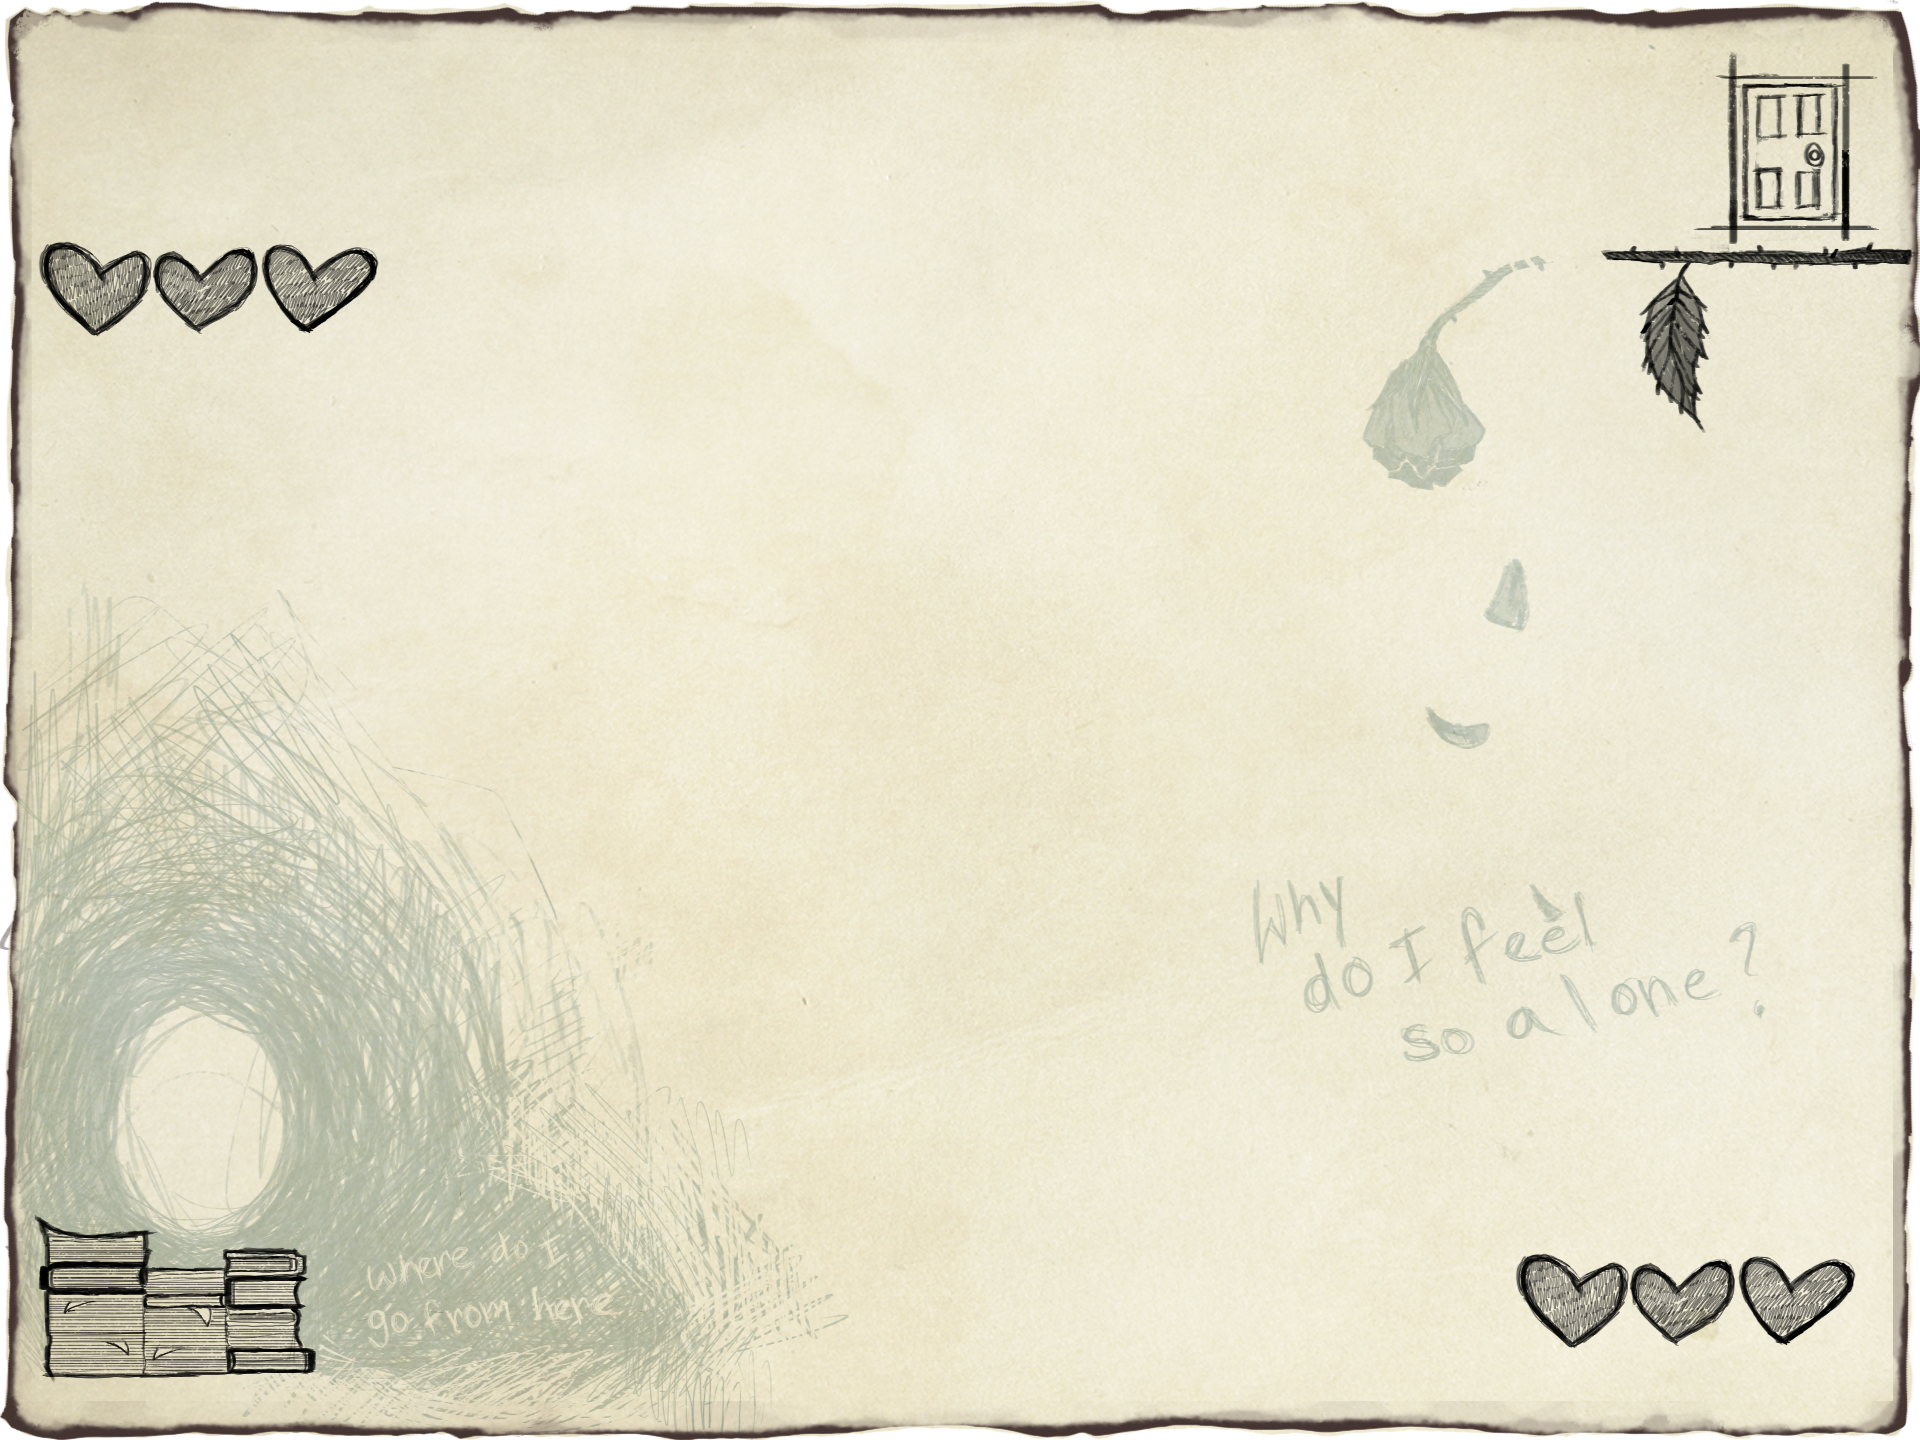 Why
do I feel
so alone?
where do I
go from here